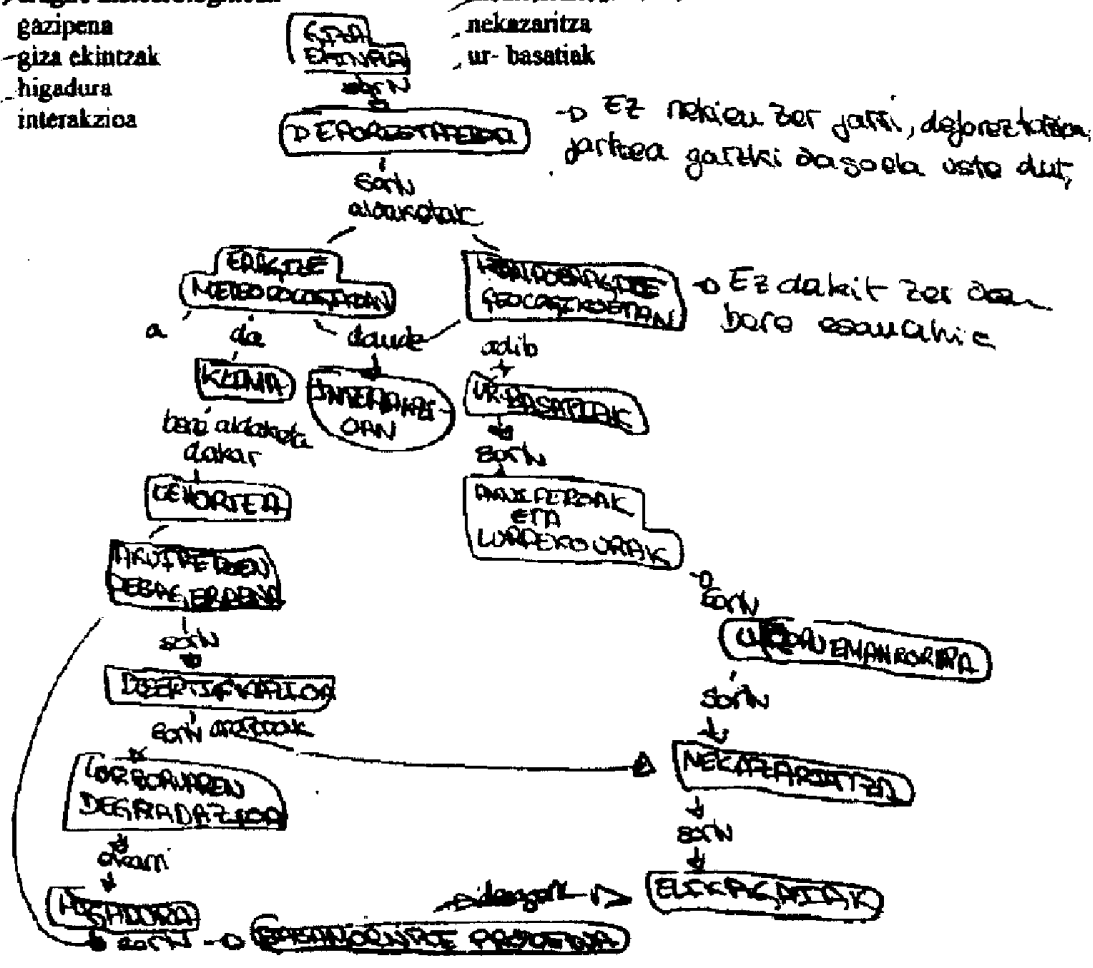 gazipena
giza ekintzak
higadura
interakzioa
nekazaritza
ur- basatiak
GIZA
sortu
DEFORESTAZIOA
-D Ez nekien zer jarri, deforeztazioa
jartzea gaizki dagoela uste dut,
sortu
aldaketak
ERAGILE
METEOROLOGIKOAN
GEOLOGIKOETAN
-D Ez dakit zer den
bere esanahia
a
da
daude
adib
KLIMA
INTERAKZI-
OAN
UR-BASATIAK
bere aldaketa
dakar
sortu
LEHORTEA
AKUIFEROAK
ETA
LURPEKO URAK
AKUIFEROEN
sortu
sortu
EMANKORRA
DESERTIFIKAZIOA
sortu
sortu arazoak
NEKAZARITZA
LURZORUAREN
DEGRADAZIOA
sortu
ekarri
ELIKAGAIAK
HIGADURA
sortu